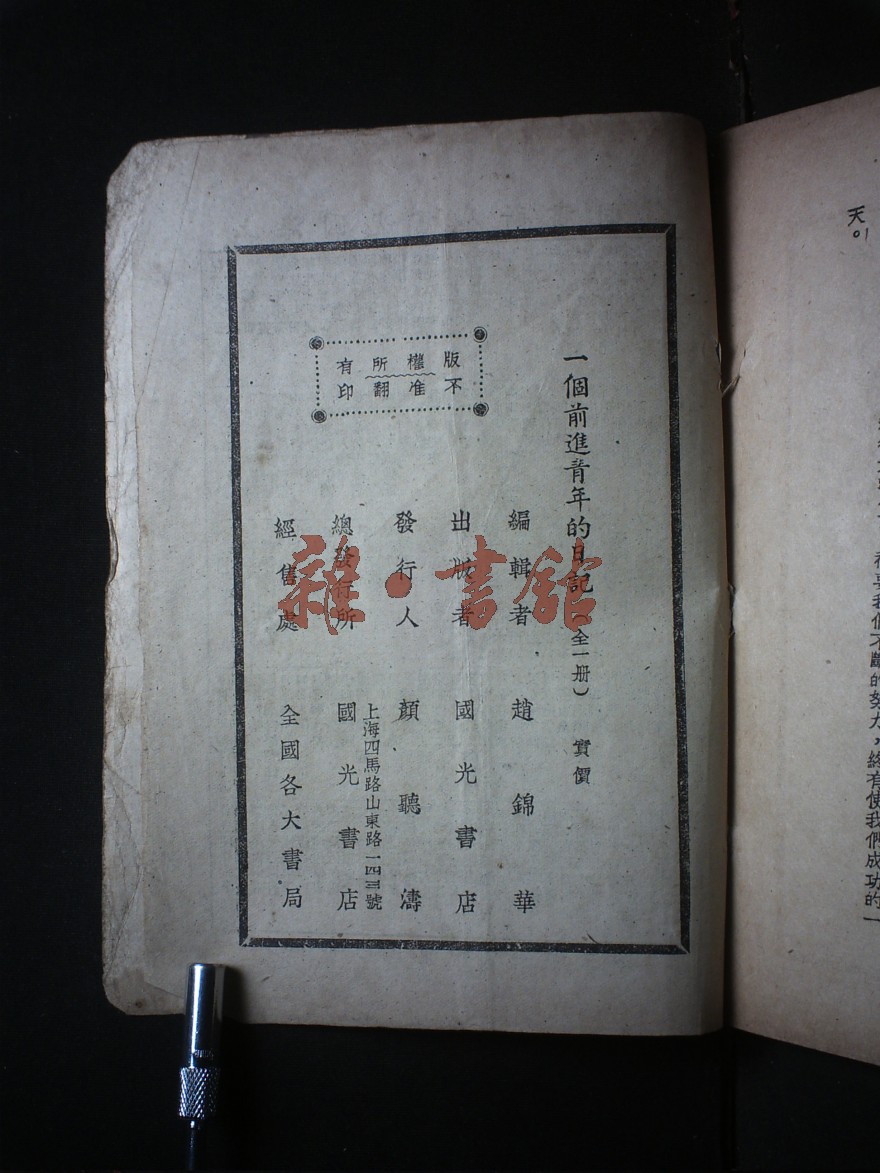 天。
一個前進青年的日記（全一册） 實價
編輯者 趙錦華
出版者 國光書店
發行人 顏聽濤
上海四馬路山東路一四三號
總發行所 國光書店
經售處 全國各大書局
版權所有
不准翻印
雜·書館
我們不斷的努力，終有使我們成功的一